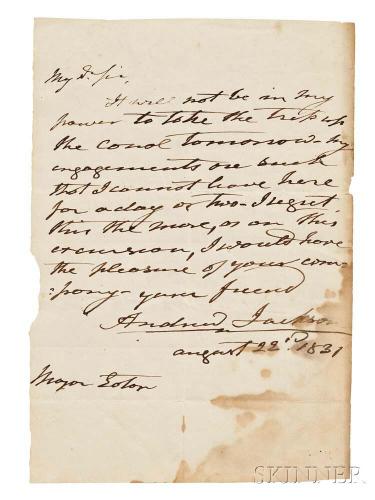 My Dr. Sir,
It will not be in my
power to take the trip up
the canal tomorrow - my
engagements are such
that I cannot leave here
for a day or two - I regret
this the more, as on this
excursion, I would have
the pleasure of your com-
:pany - your friend
Andrew Jackson
august 22d. 1831
Major Eaton
SKINNER